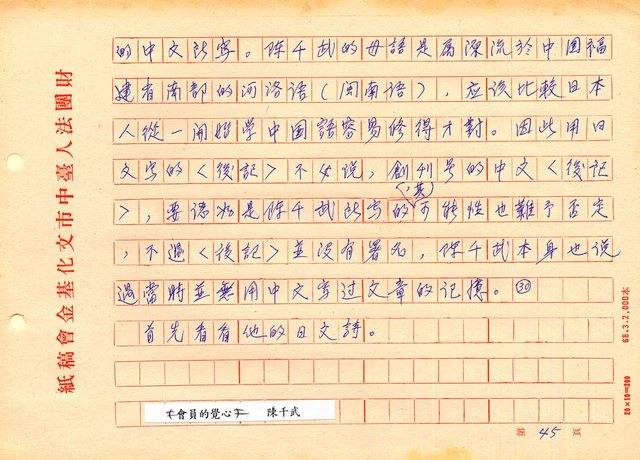 的中文所寫。陳千武的母語是屬源流於中国福
建省南部的河洛语(闽南语),应该比較日本
人從一開始学中国語容易修得才對。因此用日
文写的〈後記〉不必说,創刊号的中文〈後記
〉,要認为是陳千武所写的(其)可能性也難予否定
,不過〈後記〉並没有署名,陳千武本身也说
過當時並無用中文写过文章的记憶。㉚
首先看看他的日文詩。
《會員的覺心》 陳千武
第 45 頁
財團法人臺中市文化基金會稿紙
68.3.2,000本
20×10=200